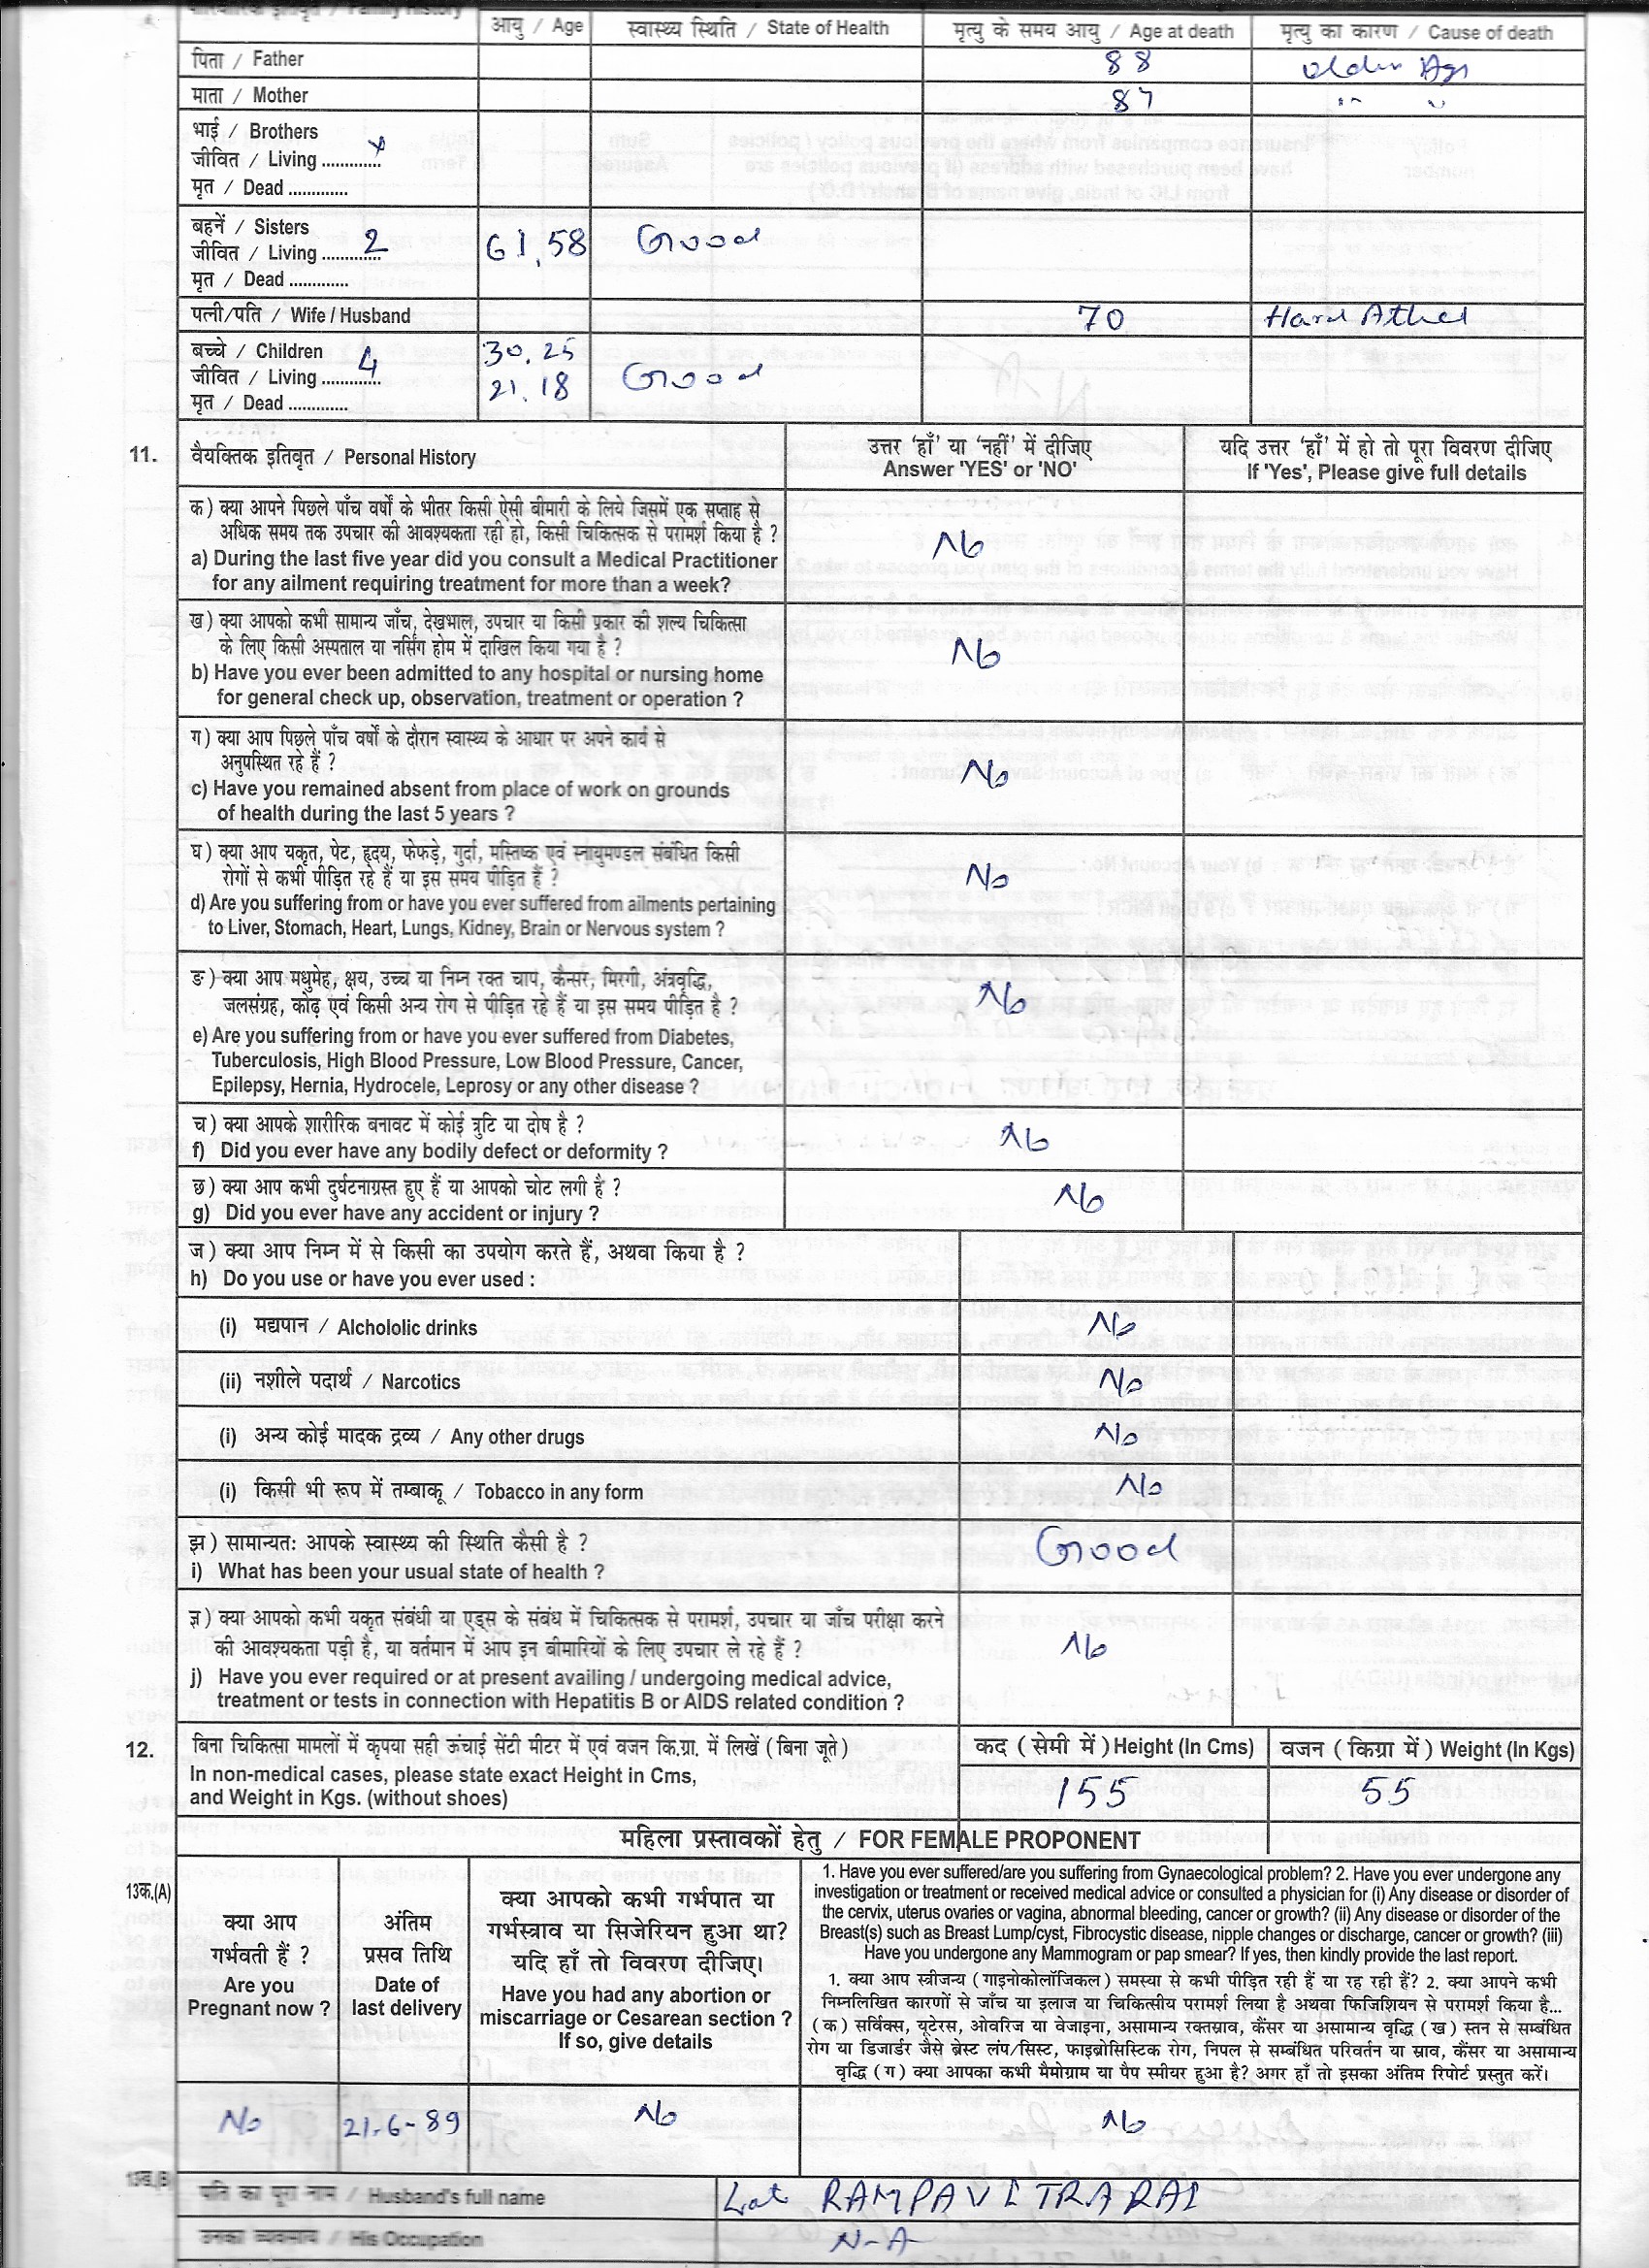 पारिवारिक इतिवृत / Family History
आयु / Age स्वास्थ्य स्थिति / State of Health मृत्यु के समय आयु / Age at death मृत्यु का कारण / Cause of death
पिता / Father 88 older Age
माता / Mother 87 " "
भाई / Brothers
जीवित / Living ............ x
मृत / Dead .............
बहनें / Sisters
जीवित / Living ............ 2 61, 58 Good
मृत / Dead .............
पत्नी/पति / Wife / Husband 70 Hard Athel
बच्चे / Children 4 30, 25
जीवित / Living ............ 21, 18 Good
मृत / Dead .............
11. वैयक्तिक इतिवृत / Personal History
उत्तर 'हाँ' या 'नहीं' में दीजिए
Answer 'YES' or 'NO'
यदि उत्तर 'हाँ' में हो तो पूरा विवरण दीजिए
If 'Yes', Please give full details
क) क्या आपने पिछले पाँच वर्षों के भीतर किसी ऐसी बीमारी के लिये जिसमें एक सप्ताह से
अधिक समय तक उपचार की आवश्यकता रही हो, किसी चिकित्सक से परामर्श किया है ?
a) During the last five year did you consult a Medical Practitioner
for any ailment requiring treatment for more than a week?
No
ख) क्या आपको कभी सामान्य जाँच, देखभाल, उपचार या किसी प्रकार की शल्य चिकित्सा
के लिए किसी अस्पताल या नर्सिंग होम में दाखिल किया गया है ?
b) Have you ever been admitted to any hospital or nursing home
for general check up, observation, treatment or operation ?
No
ग) क्या आप पिछले पाँच वर्षों के दौरान स्वास्थ्य के आधार पर अपने कार्य से
अनुपस्थित रहे हैं ?
c) Have you remained absent from place of work on grounds
of health during the last 5 years ?
No
घ) क्या आप यकृत, पेट, हृदय, फेफड़े, गुर्दा, मस्तिष्क एवं स्नायुमण्डल संबंधित किसी
रोगों से कभी पीड़ित रहे हैं या इस समय पीड़ित हैं ?
d) Are you suffering from or have you ever suffered from ailments pertaining
to Liver, Stomach, Heart, Lungs, Kidney, Brain or Nervous system ?
No
ङ) क्या आप मधुमेह, क्षय, उच्च या निम्न रक्त चाप, कैन्सर, मिरगी, अंत्रवृद्धि,
जलसंग्रह, कोढ़ एवं किसी अन्य रोग से पीड़ित रहे हैं या इस समय पीड़ित है ?
e) Are you suffering from or have you ever suffered from Diabetes,
Tuberculosis, High Blood Pressure, Low Blood Pressure, Cancer,
Epilepsy, Hernia, Hydrocele, Leprosy or any other disease ?
No
च) क्या आपके शारीरिक बनावट में कोई त्रुटि या दोष है ?
f) Did you ever have any bodily defect or deformity ?
No
छ) क्या आप कभी दुर्घटनाग्रस्त हुए हैं या आपको चोट लगी है ?
g) Did you ever have any accident or injury ?
No
ज) क्या आप निम्न में से किसी का उपयोग करते हैं, अथवा किया है ?
h) Do you use or have you ever used :
(i) मद्यपान / Alchololic drinks No
(ii) नशीले पदार्थ / Narcotics No
(i) अन्य कोई मादक द्रव्य / Any other drugs No
(i) किसी भी रूप में तम्बाकू / Tobacco in any form No
झ) सामान्यतः आपके स्वास्थ्य की स्थिति कैसी है ?
i) What has been your usual state of health ?
Good
ञ) क्या आपको कभी यकृत संबंधी या एड्स के संबंध में चिकित्सक से परामर्श, उपचार या जाँच परीक्षा करने
की आवश्यकता पड़ी है, या वर्तमान में आप इन बीमारियों के लिए उपचार ले रहे हैं ?
j) Have you ever required or at present availing / undergoing medical advice,
treatment or tests in connection with Hepatitis B or AIDS related condition ?
No
12. बिना चिकित्सा मामलों में कृपया सही ऊंचाई सेंटी मीटर में एवं वजन कि.ग्रा. में लिखें (बिना जूते)
In non-medical cases, please state exact Height in Cms,
and Weight in Kgs. (without shoes)
कद ( सेमी में ) Height (In Cms) वजन ( किग्रा में ) Weight (In Kgs)
155 55
महिला प्रस्तावकों हेतु / FOR FEMALE PROPONENT
13क.(A)
क्या आप
गर्भवती हैं ?
Are you
Pregnant now ?
अंतिम
प्रसव तिथि
Date of
last delivery
क्या आपको कभी गर्भपात या
गर्भस्त्राव या सिजेरियन हुआ था?
यदि हाँ तो विवरण दीजिए।
Have you had any abortion or
miscarriage or Cesarean section ?
If so, give details
1. Have you ever suffered/are you suffering from Gynaecological problem? 2. Have you ever undergone any
investigation or treatment or received medical advice or consulted a physician for (i) Any disease or disorder of
the cervix, uterus ovaries or vagina, abnormal bleeding, cancer or growth? (ii) Any disease or disorder of the
Breast(s) such as Breast Lump/cyst, Fibrocystic disease, nipple changes or discharge, cancer or growth? (iii)
Have you undergone any Mammogram or pap smear? If yes, then kindly provide the last report.
1. क्या आप स्त्रीजन्य (गाइनोकोलॉजिकल) समस्या से कभी पीड़ित रही हैं या रह रही हैं? 2. क्या आपने कभी
निम्नलिखित कारणों से जाँच या इलाज या चिकित्सीय परामर्श लिया है अथवा फिजिशियन से परामर्श किया है...
(क) सर्विक्स, यूटेरस, ओवरिज या वेजाइना, असामान्य रक्तस्राव, कैंसर या असामान्य वृद्धि (ख) स्तन से सम्बंधित
रोग या डिजार्डर जैसे ब्रेस्ट लंप/सिस्ट, फाइब्रोसिस्टिक रोग, निपल से सम्बंधित परिवर्तन या स्राव, कैंसर या असामान्य
वृद्धि (ग) क्या आपका कभी मैमोग्राम या पैप स्मीयर हुआ है? अगर हाँ तो इसका अंतिम रिपोर्ट प्रस्तुत करें।
No 21-6-89 No No
13ख.(B) पति का पूरा नाम / Husband's full name Lat RAMPAVITRA RAI
उनका व्यवसाय / His Occupation N-A